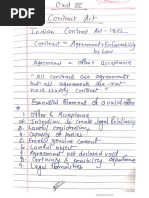 Unit III
Contract Act
Indian Contract Act - 1872
Contract = Agreement + Enforceability
by Law
Agreement = offer + Acceptance
"All contracts are agreements
but all agreements are not
necessarily contract"
Essential Element of a valid offer
Offer & Acceptance
Intention to create legal relationship
Lawful consideration
Capacity of parties
Free & genuine consent
Lawful object
Agreement not declared void
Certainty & possibility of performance
Legal formalities